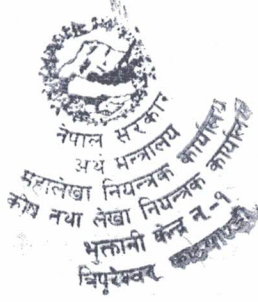 नेपाल सरकार
अर्थ मन्त्रालय
महालेखा नियन्त्रक कार्यालय
कोष तथा लेखा नियन्त्रक कार्यालय
भुक्तानी केन्द्र नं-१
त्रिपुरेश्वर काठमाण्डौ